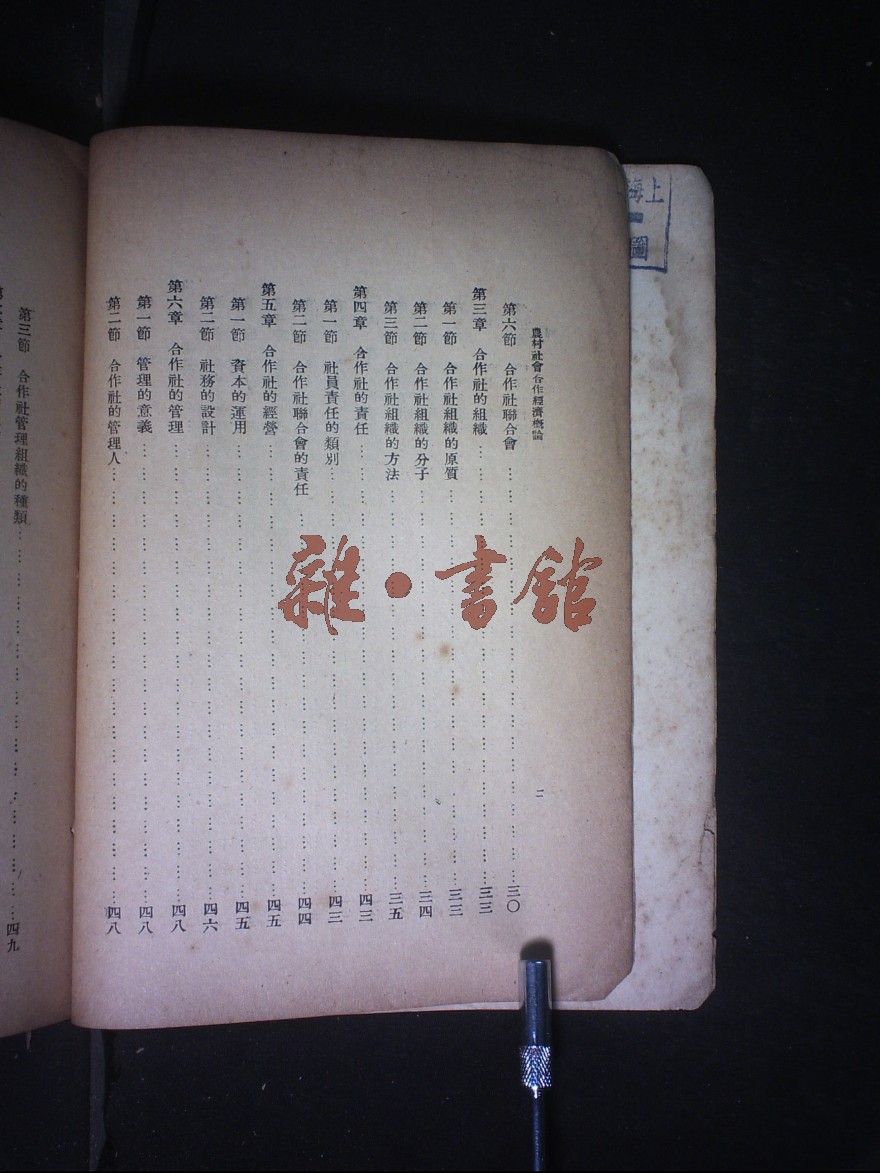 農村社會合作經濟概論
二
第六節 合作社聯合會 三〇
第三章 合作社的組織 三三
第一節 合作社組織的原質 三三
第二節 合作社組織的分子 三四
第三節 合作社組織的方法 三五
第四章 合作社的責任 四三
第一節 社員責任的類別 四三
第二節 合作社聯合會的責任 四四
第五章 合作社的經營 四五
第一節 資本的運用 四五
第二節 社務的設計 四六
第六章 合作社的管理 四八
第一節 管理的意義 四八
第二節 合作社的管理人 四八
第三節 合作社管理組織的種類 四九
雜•書館
上海
圖